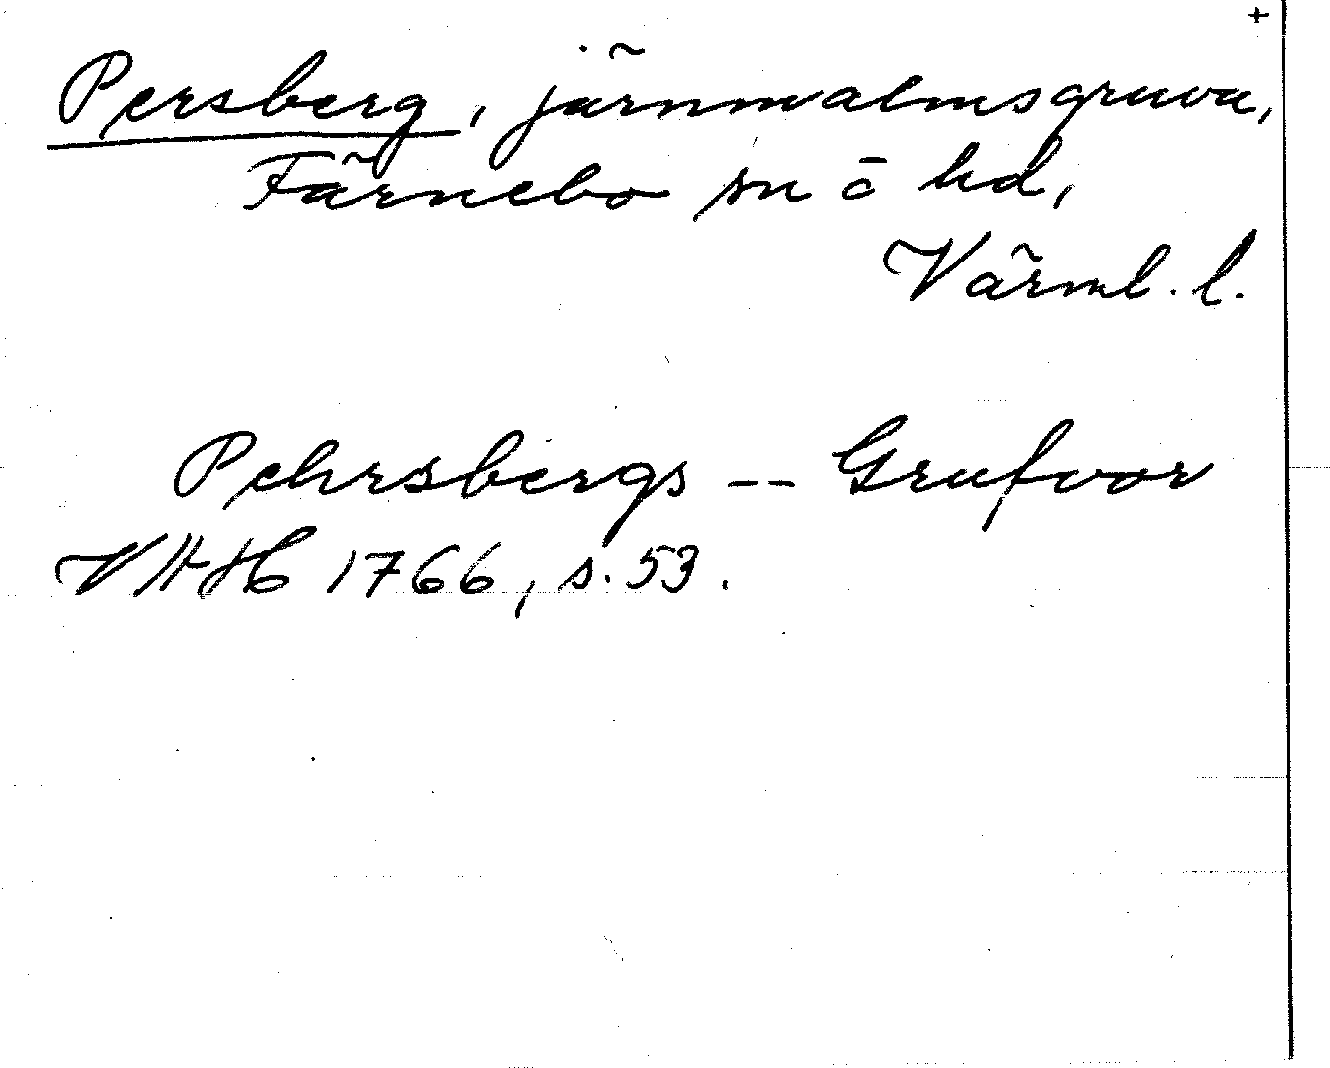 +
Persberg, järnmalmsgruva,
Färnebo sn o hd,
Värml. l.
Pehrsbergs -- Grufvor
VAH 1766, s. 53.